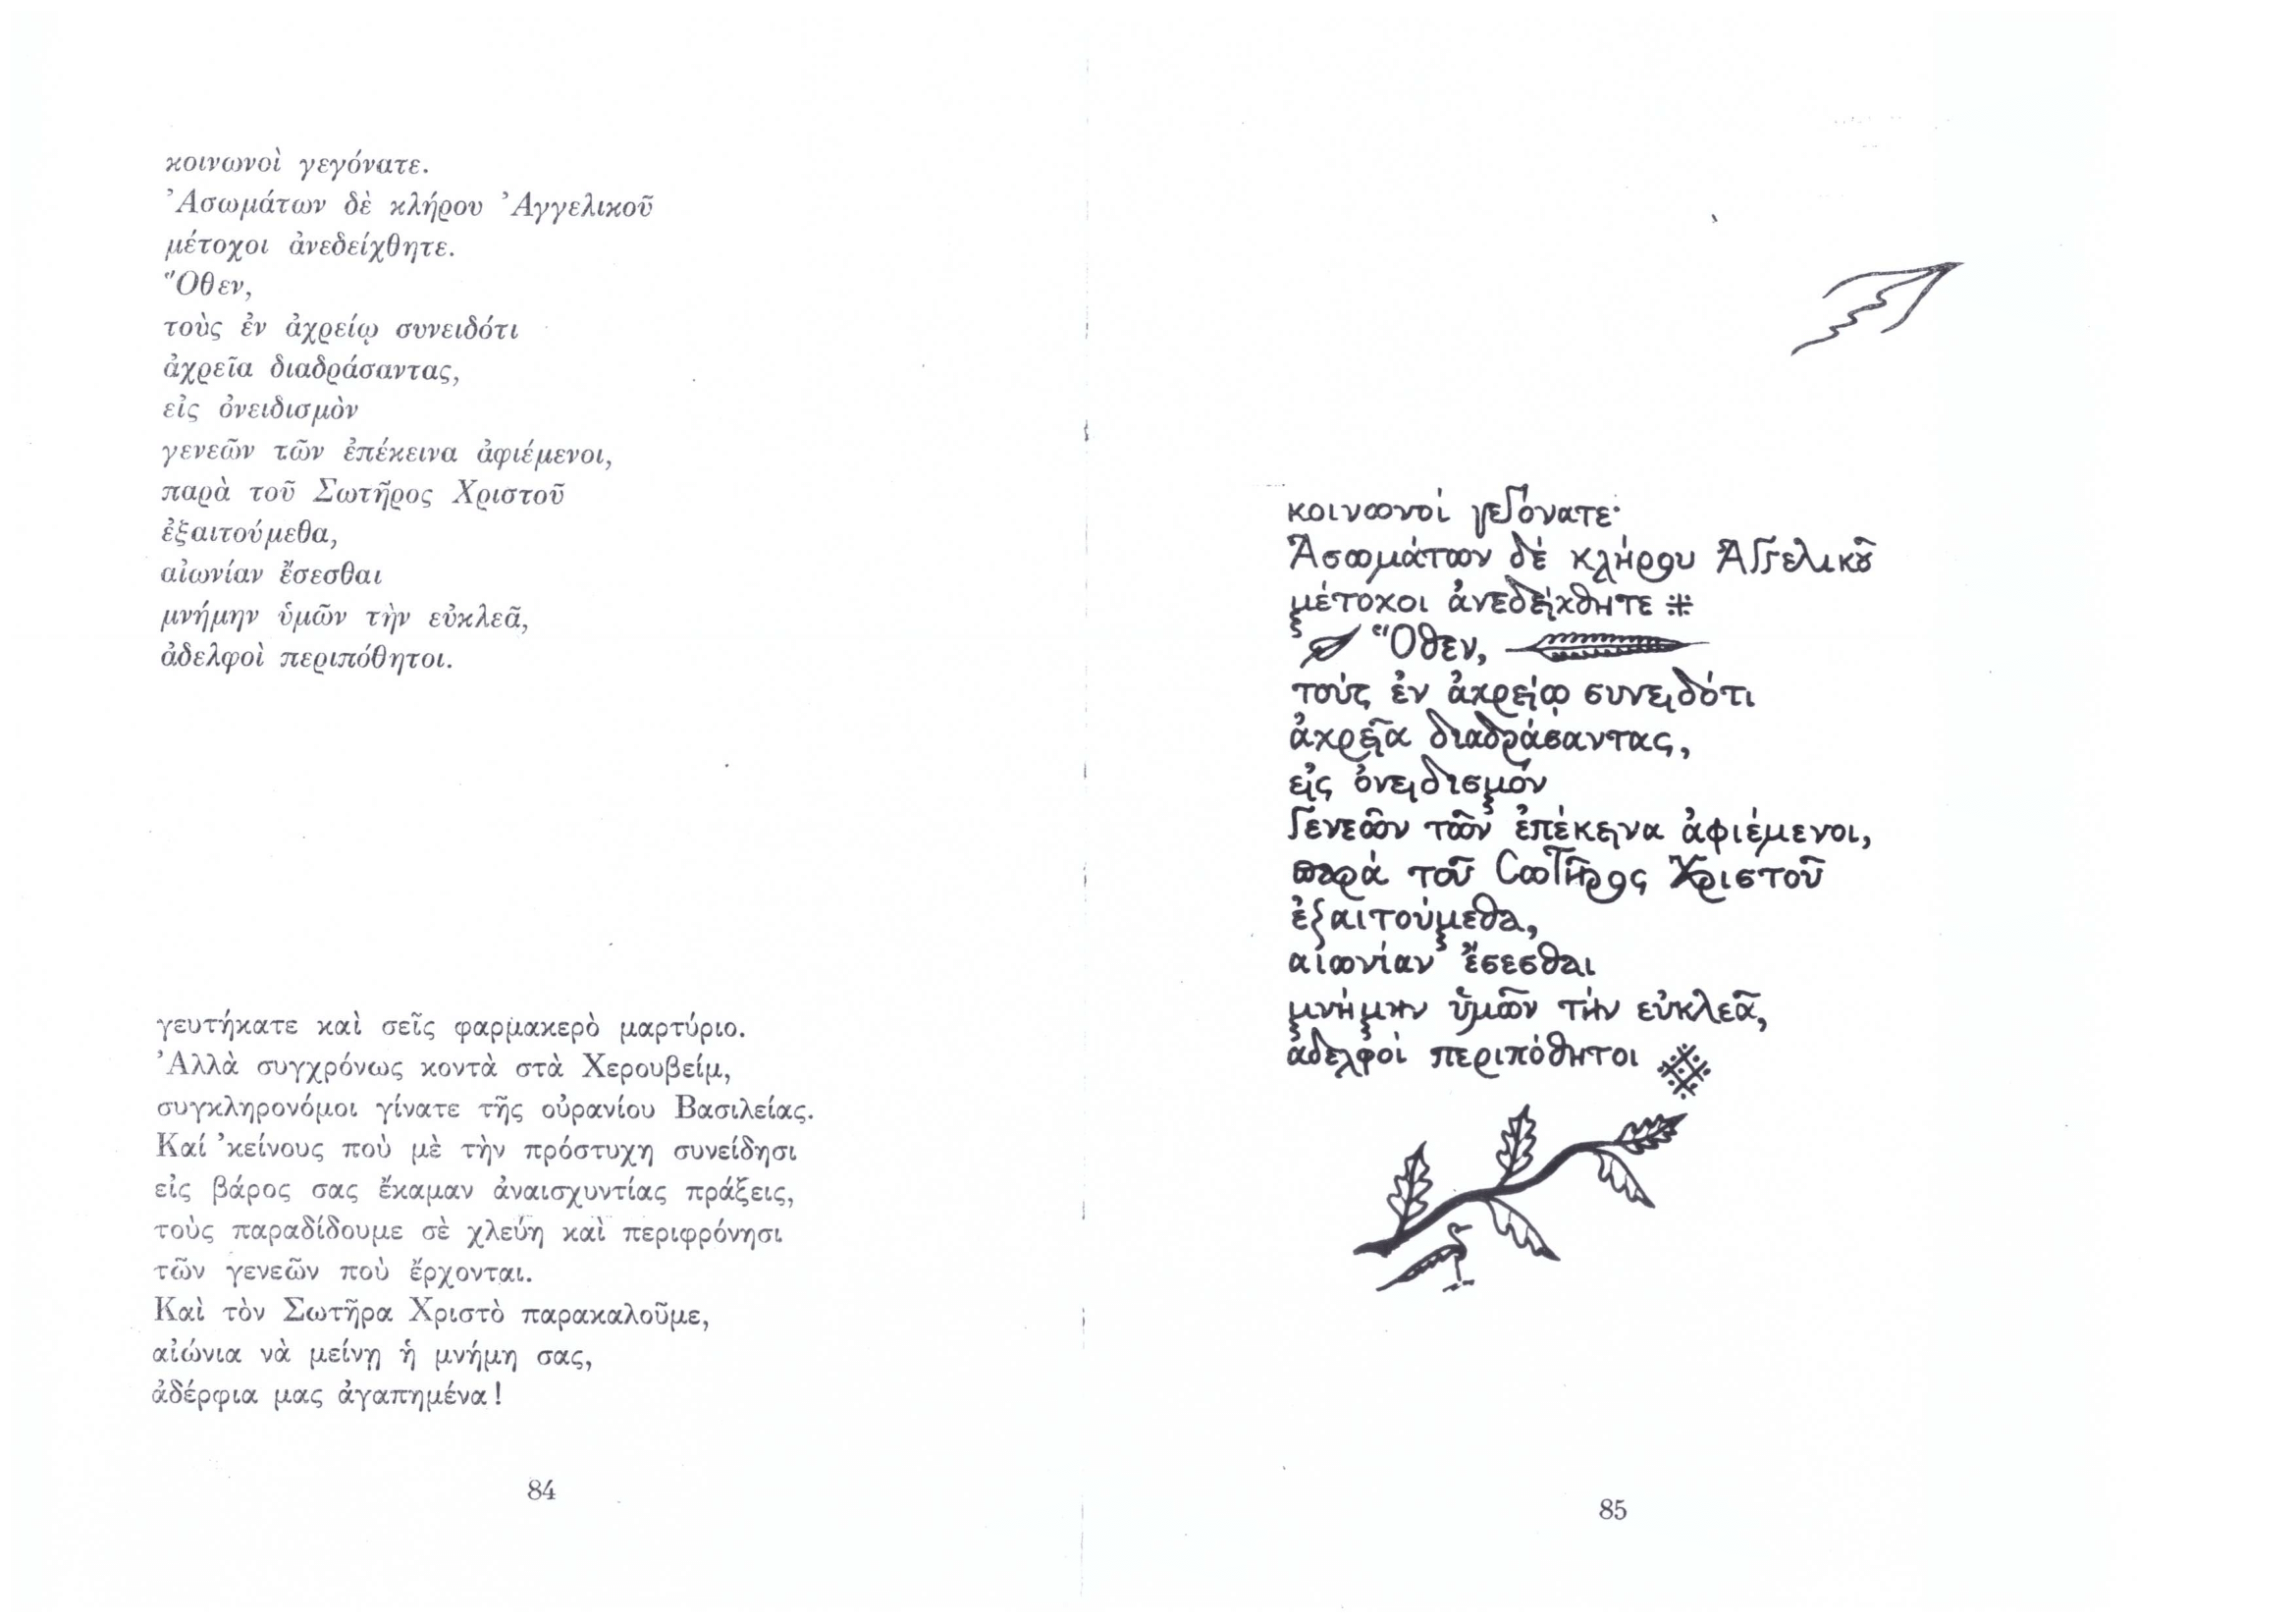 κοινωνοὶ γεγόνατε.
Ἀσωμάτων δὲ κλήρου Ἀγγελικοῦ
μέτοχοι ἀνεδείχθητε.
Ὅθεν,
τοὺς ἐν ἀχρείῳ συνειδότι
ἀχρεῖα διαδράσαντας,
εἰς ὀνειδισμὸν
γενεῶν τῶν ἐπέκεινα ἀφιέμενοι,
παρὰ τοῦ Σωτῆρος Χριστοῦ
ἐξαιτούμεθα,
αἰωνίαν ἔσεσθαι
μνήμην ὑμῶν τὴν εὐκλεᾶ,
ἀδελφοὶ περιπόθητοι.
γευτήκατε καὶ σεῖς φαρμακερὸ μαρτύριο.
Ἀλλὰ συγχρόνως κοντὰ στὰ Χερουβείμ,
συγκληρονόμοι γίνατε τῆς οὐρανίου Βασιλείας.
Καί ’κείνους ποὺ μὲ τὴν πρόστυχη συνείδησι
εἰς βάρος σας ἔκαμαν ἀναισχυντίας πράξεις,
τοὺς παραδίδουμε σὲ χλεύη καὶ περιφρόνησι
τῶν γενεῶν ποὺ ἔρχονται.
Καὶ τὸν Σωτῆρα Χριστὸ παρακαλοῦμε,
αἰώνια νὰ μείνῃ ἡ μνήμη σας,
ἀδέρφια μας ἀγαπημένα!
84
κοινωνοί γεγόνατε·
Ἀσωμάτων δέ κλήρου Ἀγγελικοῦ
μέτοχοι ἀνεδείχθητε
Ὅθεν,
τούς ἐν ἀχρείῳ συνειδότι
ἀχρεῖα διαδράσαντας,
εἰς ὀνειδισμόν
γενεῶν τῶν ἐπέκεινα ἀφιέμενοι,
παρά τοῦ Σωτῆρος Χριστοῦ
ἐξαιτούμεθα,
αἰωνίαν ἔσεσθαι
μνήμην ὑμῶν τήν εὐκλεᾶ,
ἀδελφοί περιπόθητοι
85